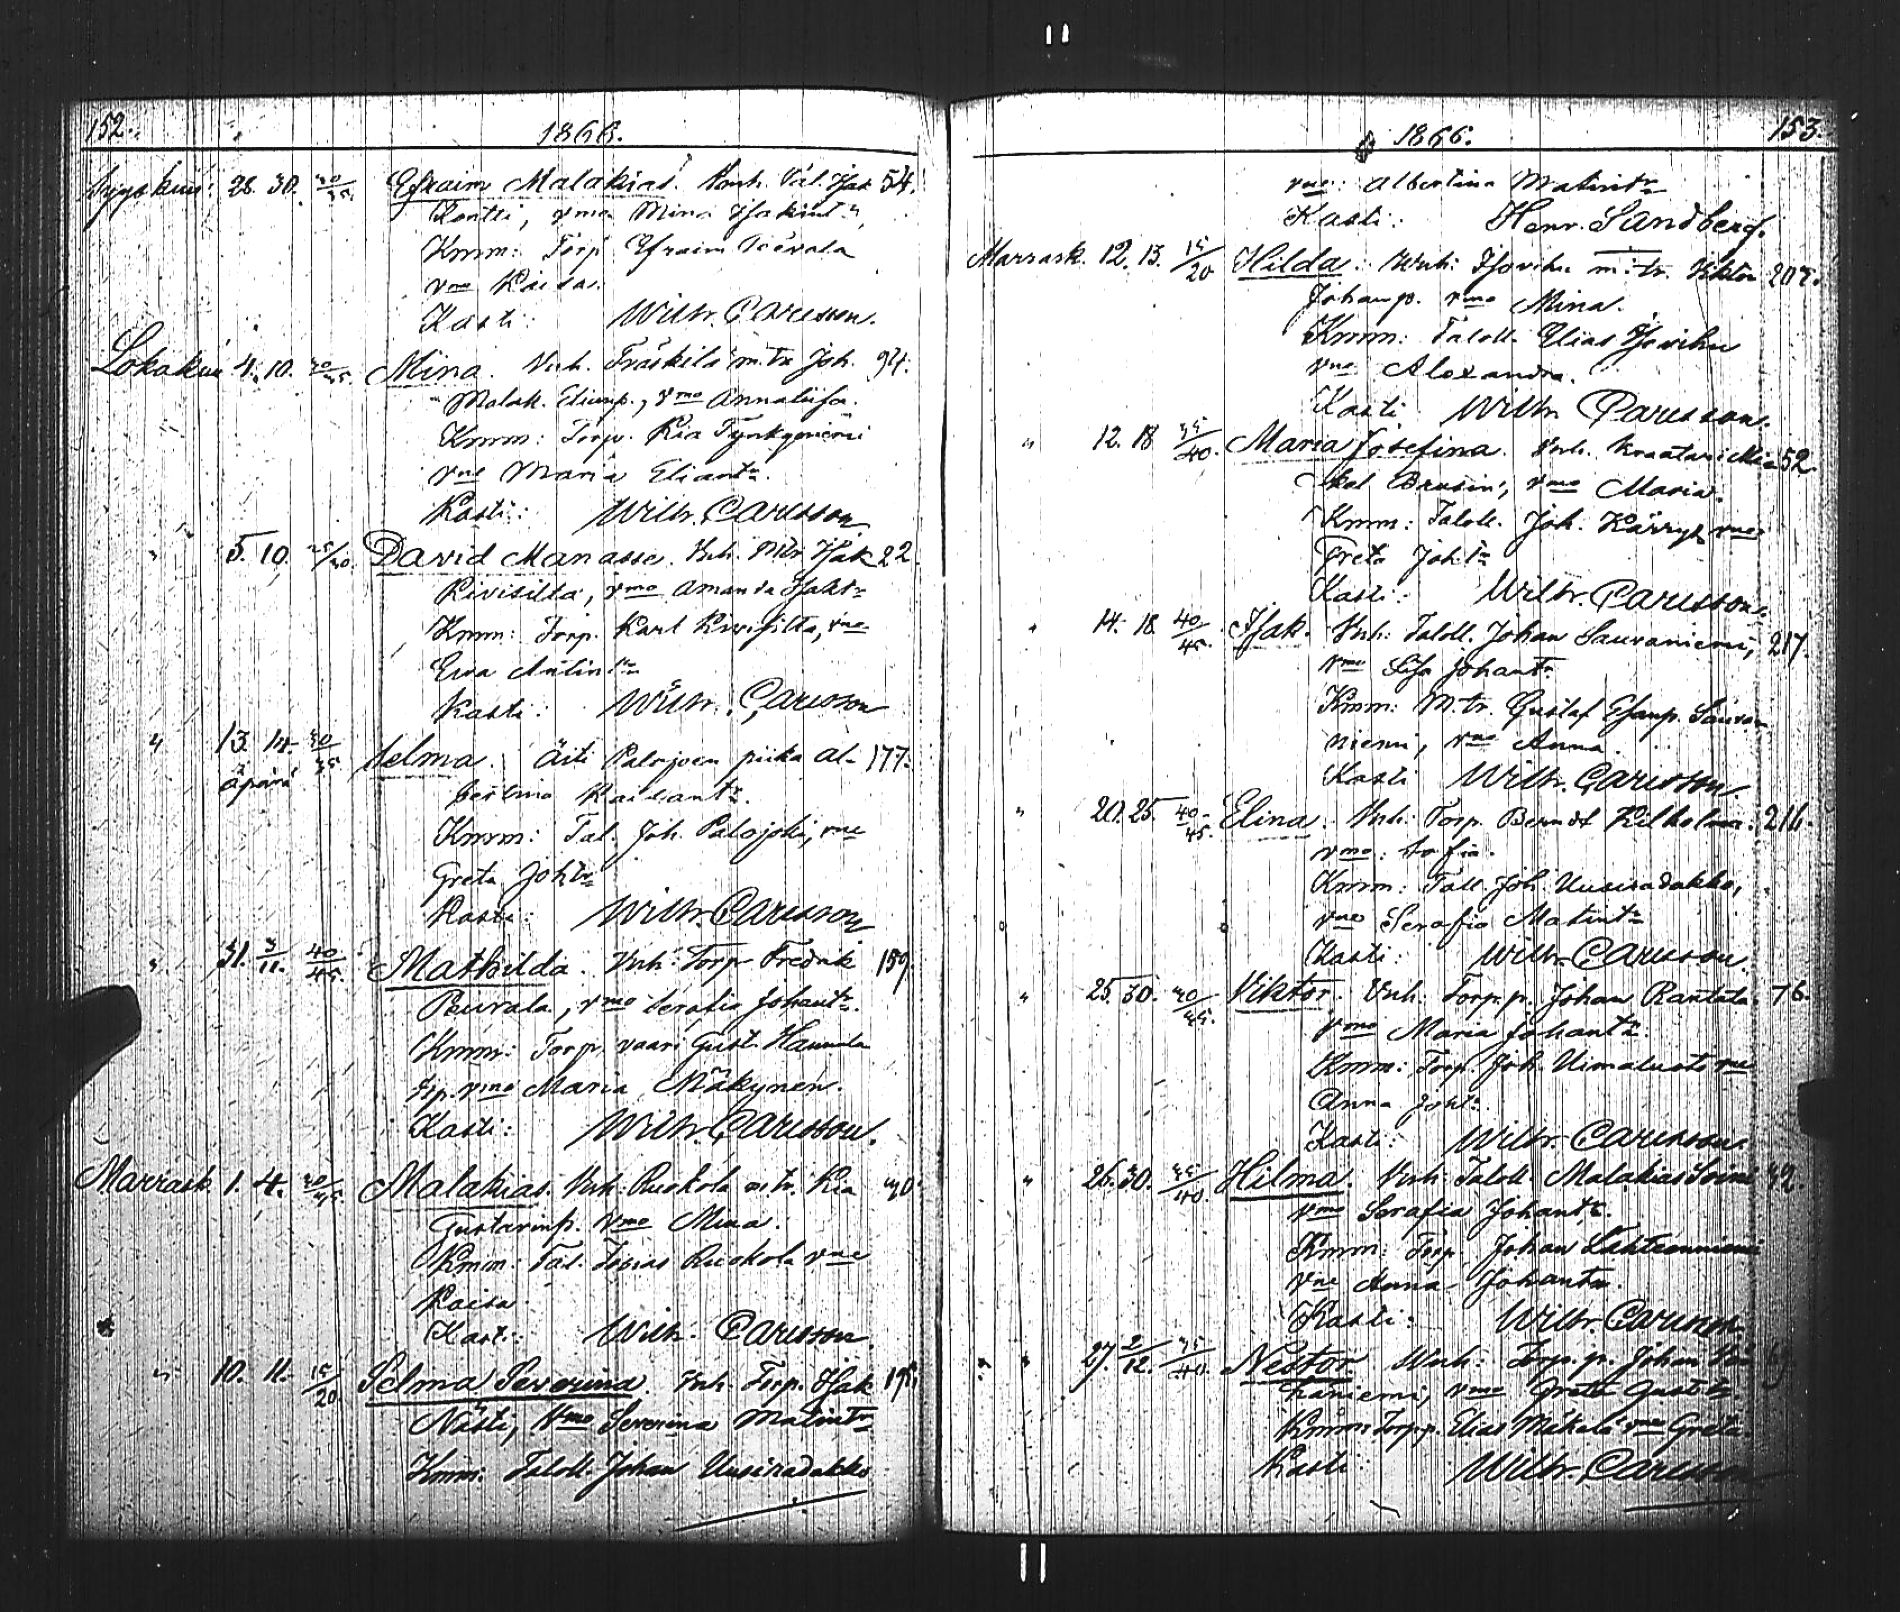 152.
1866.
Syyskuu 28. 30. 30/35. Efraim Malakias. Vanh. Tal. Isak 54.
Kontti, vmo Mina Isakint.
Kmm: Torp. Efraim
vmo Kaisa.
Kasti: Wilh. Carlsson.
Lokakuu 4. 10. 30/35. Mina. Vanh. Träskilä m. tr. Joh. 94.
Malak. Eliump., vmo Annaliisa.
Kmm: Torp. Kia Tynkyniemi
vne Maria Eliantr.
Kasti: Wilh. Carlsson
" 5. 10. 25/30. David Manasse. Vnh. Isak 22.
Kivisilta, vmo Amanda Isaktr
Kmm: Torp. Karl Kivisilta, vne
Eva Antintr
Kasti: Wilh. Carlsson
" 13. 14. 30/35 Selma. Äiti Palojoen piika Al- 177.
äpärä
bertina
Kmm: Tal. Joh. Palojoki, vne
Greta Johtr
Kasti: Wilh. Carlsson
" 31. 3/11. 40/45. Mathilda. Vnh: Torp Fredrik 159.
Peuvala, vmo Serafia Johantr.
Kmm: Torp. vaari Gust. Haunula
tp. vmo Maria Mäkynen.
Kasti: Wilh. Carlsson.
Marrask. 1. 4. 30/35. Malakias. Vnh. Ruokola m. tr. Kia
Gustavinp. vmo Mina.
Kmm: Tal. Tobias Ruokola vne
Kaisa.
Kasti: Wilh. Carlsson.
" 10. 11. 15/20 Selma Severina. Vnh. Torp. Isak 195.
Nästi, vmo Severina Matintr
Kmm: Taloll. Johan Uusiradakko
1866.
153.
vne: Albertina Matintr
Kasti: Henr. Sandberg.
Marrask. 12. 13. 15/20 Hilda. Vnh: Isovihu m. tr. Viktor 207.
Johanp. vmo Mina.
Kmm: Taloll. Elias Isovihu
vne Alexandra.
Kasti Wilh. Carlsson.
" 12. 18 35/40. Maria Josefina. Vnh. Kraatari 52.
Brusin, vmo Maria.
Kmm: Taloll. Joh. Kärry, vne
Greta Johtr
Kasti: Wilh. Carlsson.
" 14. 18. 40/45. Isak. Vnh: Taloll. Johan Sauvaniemi, 217.
vmo Johantr.
Kmm: M. tr. Gustaf Sauva-
niemi, vne Anna.
Kasti Wilh. Carlsson.
" 20. 25. 40/45. Elina. Vnh: Torp. Berndt Kilholma. 216.
vmo: Sofia.
Kmm: Tall. Joh. Uusiradakko,
vne Serafia Matintr
Kasti: Wilh. Carlsson.
" 25. 30. 30/35. Viktor. Vnh. Torp. p. Johan Rantala. 76.
vmo Maria Johantr
Kmm: Torp. Joh. Uimaluoto vne
Anna Johtr
Kasti: Wilh. Carlsson.
" 26. 30. 35/40 Hilma. Vnh: Taloll. Malakias Soini
vmo Serafia Johantr.
Kmm: Torp. Johan Lahteenniemi
vne Anna Johantr.
Kasti: Wilh. Carlsson.
" 27. 2/12. 35/40. Nestor Vnh: Torp. p. Johan
niemi, vmo Greta Gusttr.
Kmm: Torp. p. Elias Mäkelä vmo Greta
Kasti: Wilh. Carlsson